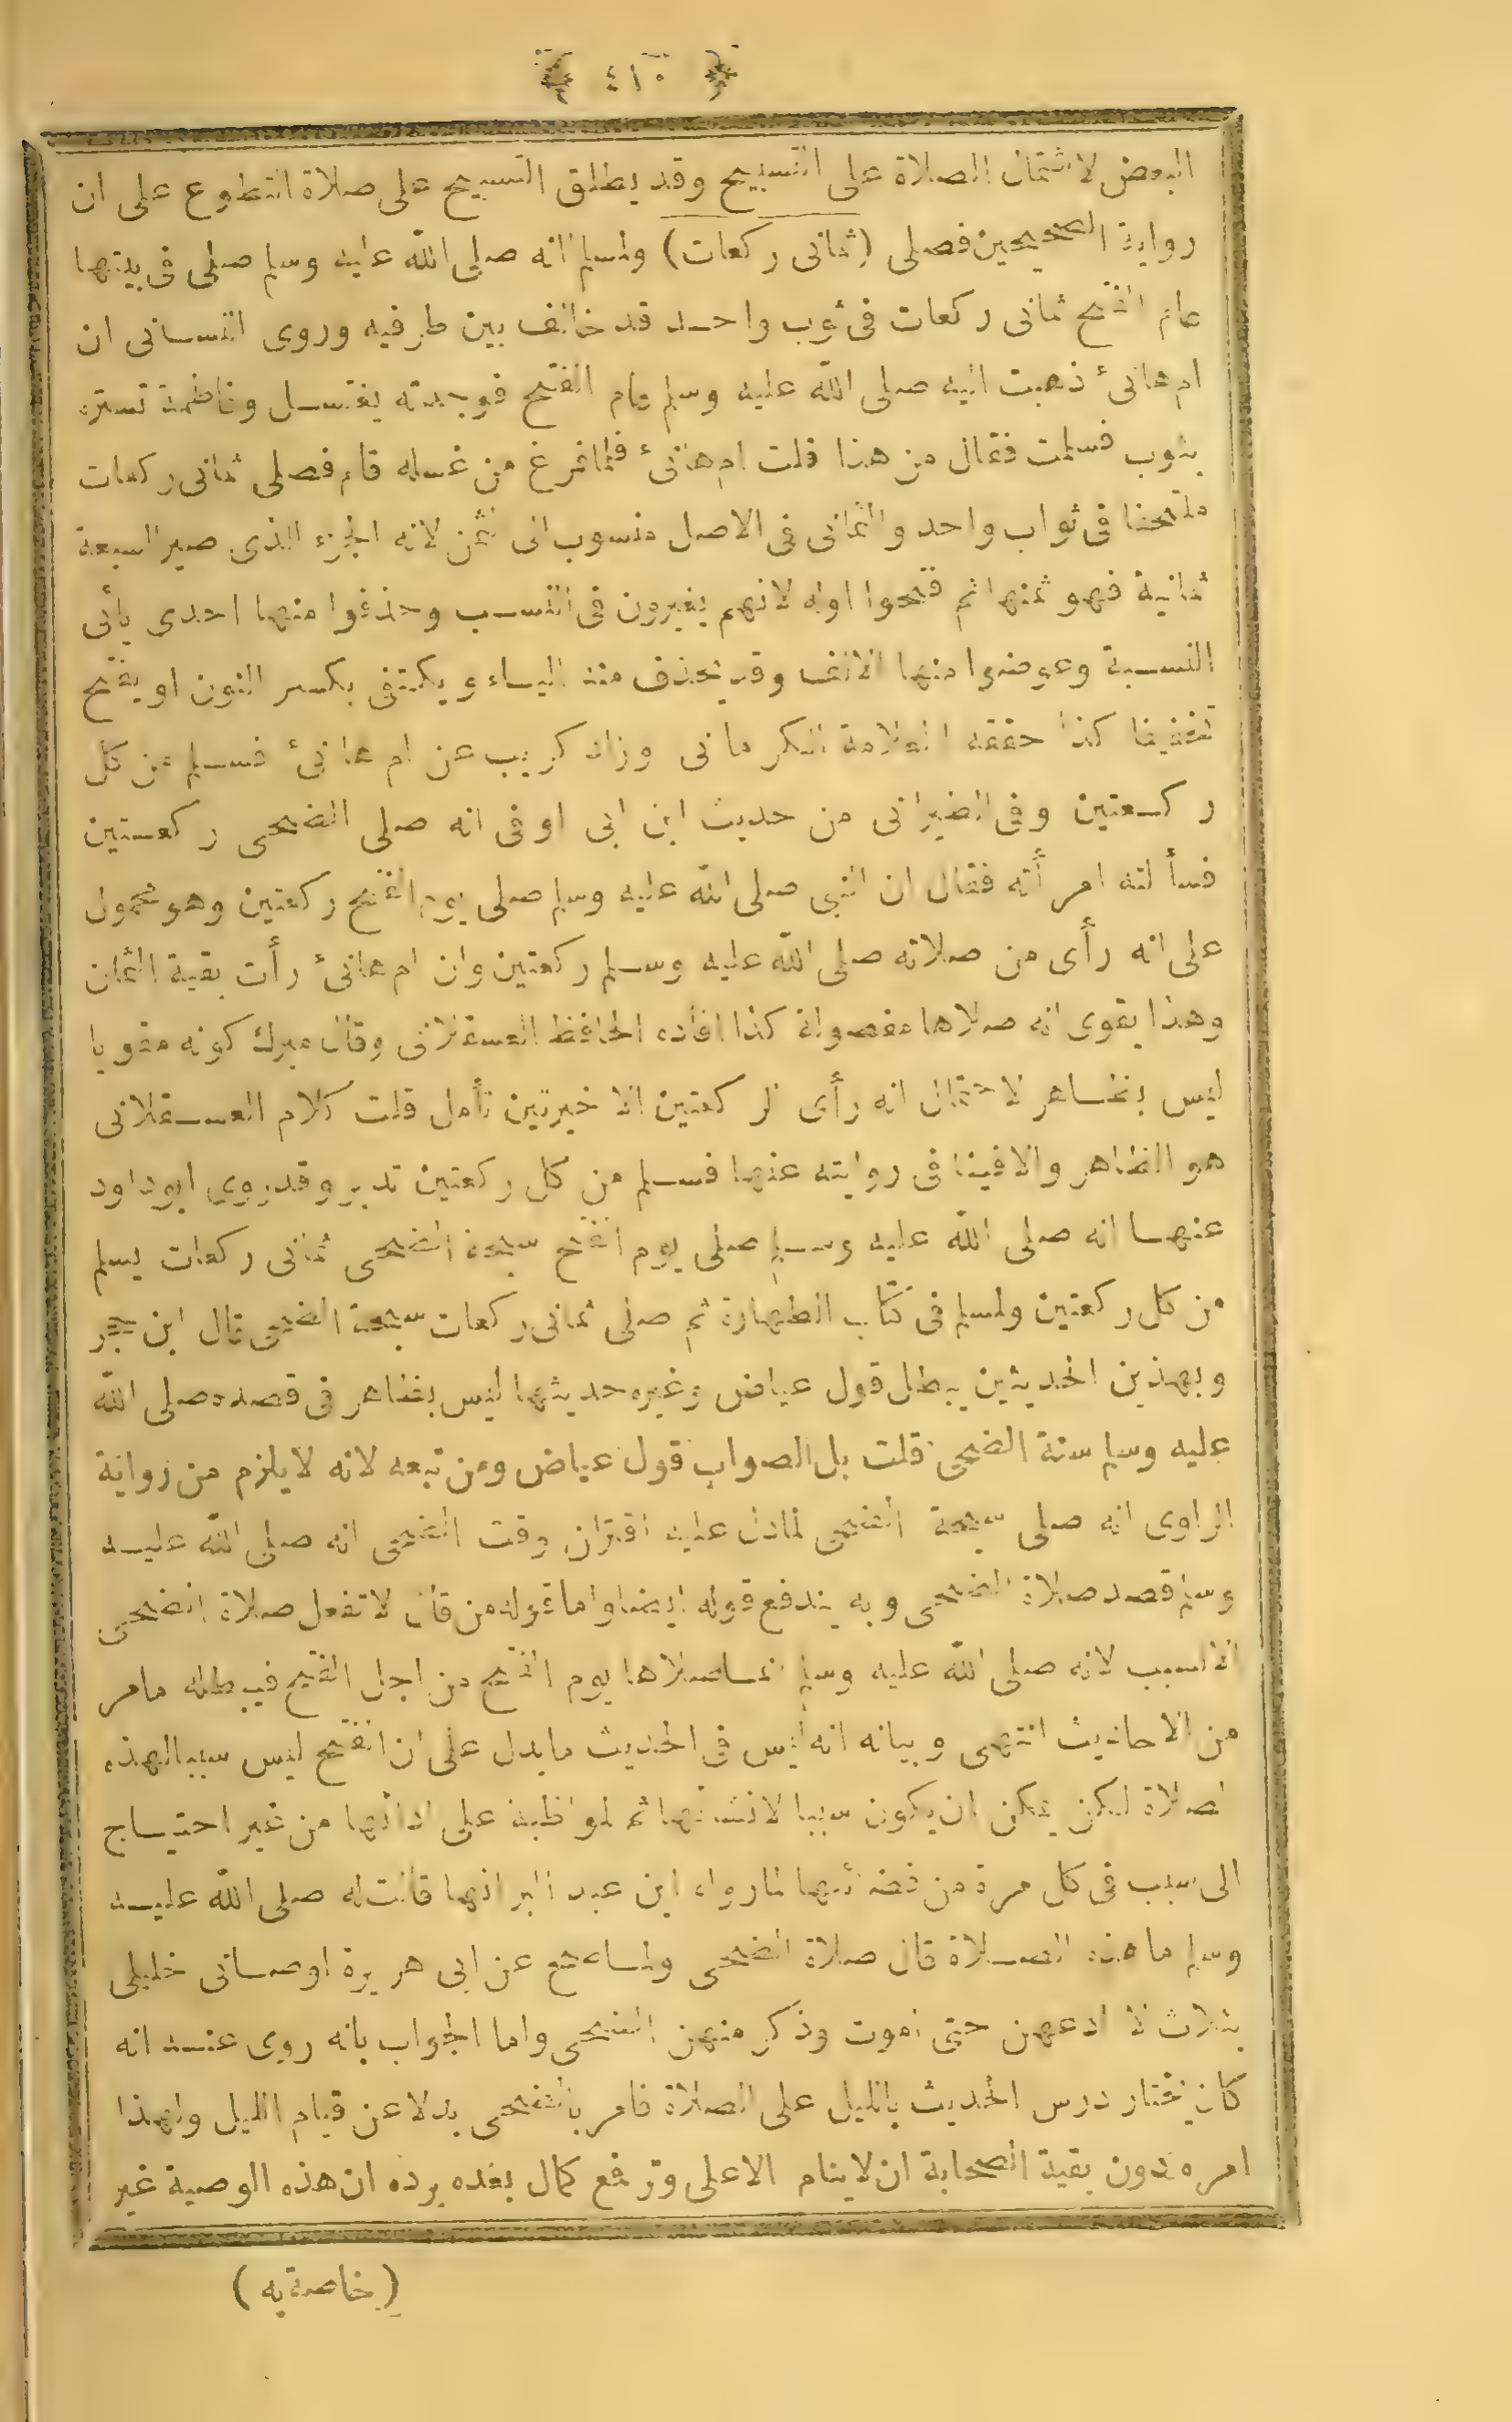 ﴿ ٤١٠ ﴾
البعض لاشتمال الصلاة على التسبيح وقد يطلق التسبيح على صلاة التطوع على ان
رواية الصحيحين فصلى (ثمانى ركعات) ولمسلم انه صلى الله عليه وسلم صلى فى بيتها
عام الفتح ثمانى ركعات فى ثوب واحد قد خالف بين طرفيه وروى النسائى ان
ام هانئ ذهبت اليه صلى الله عليه وسلم عام الفتح فوجدته يغتسل وفاطمة تستره
بثوب فسلمت فقال من هذا قلت ام هانئ فلما فرغ من غسله قام فصلى ثمانى ركعات
ملتحفا فى ثواب واحد والثمانى فى الاصل منسوب الى ثمن لانه الجزء الذى صير السبعة
ثمانية فهو ثمنها ثم فتحوا اوله لانهم يغيرون فى النسب وحذفوا منها احدى يائى
النسبة وعوضوا منها الالف وقد يحذف منه الياء ويكتفى بكسر النون او يفتح
تخفيفا كذا حققه العلامة الكرمانى وزاد كريب عن ام هانئ فسلم من كل
ركعتين وفى الطبرانى من حديث ابن ابى اوفى انه صلى الضحى ركعتين
فسألته امرأته فقال ان النبى صلى الله عليه وسلم صلى يوم الفتح ركعتين وهو محمول
على انه رأى من صلاته صلى الله عليه وسلم ركعتين وان ام هانئ رأت بقية الثمان
وهذا يقوى انه صلاها مفصولة كذا افاده الحافظ العسقلانى وقال ميرك كونه مقويا
ليس بظاهر لاحتمال انه رأى الركعتين الاخيرتين تأمل قلت كلام العسقلانى
هو الظاهر والافينا فى روايته عنها فسلم من كل ركعتين تدبر وقد روى ابو داود
عنها انه صلى الله عليه وسلم صلى يوم الفتح سبحة الضحى ثمانى ركعات يسلم
من كل ركعتين ولمسلم فى كتاب الطهارة ثم صلى ثمانى ركعات سبحة الضحى قال ابن حجر
وبهذين الحديثين يبطل قول عياض وغيره حديثها ليس بظاهر فى قصده صلى الله
عليه وسلم سنة الضحى قلت بل الصواب قول عياض ومن تبعه لانه لا يلزم من رواية
الراوى انه صلى سبحة الضحى لمادل عليه اقتران وقت الضحى انه صلى الله عليه
وسلم قصد صلاة الضحى وبه يندفع قوله ايضا واما قوله من قال لا تفعل صلاة الضحى
الا لسبب لانه صلى الله عليه وسلم انما صلاها يوم الفتح من اجل الفتح فيبطله مامر
من الاحاديث انتهى وبيانه انه ليس فى الحديث ما يدل على ان الفتح ليس سببا لهذه
الصلاة لكن يمكن ان يكون سببا لانشائها ثم لمواظبة على ادائها من غير احتياج
الى سبب فى كل مرة من قضائها لما رواه ابن عبد البر انها قالت له صلى الله عليه
وسلم ما هذه الصلاة قال صلاة الضحى ولما صح عن ابى هريرة اوصانى خليلى
بثلاث لا ادعهن حتى اموت وذكر منهن الضحى واما الجواب بانه روى عنه انه
كان يختار درس الحديث بالليل على الصلاة فامر بالضحى بدلا عن قيام الليل ولهذا
امره دون بقية الصحابة ان لا ينام الا على وتر فع كمال بعده يرده ان هذه الوصية غير
(خاصة به)